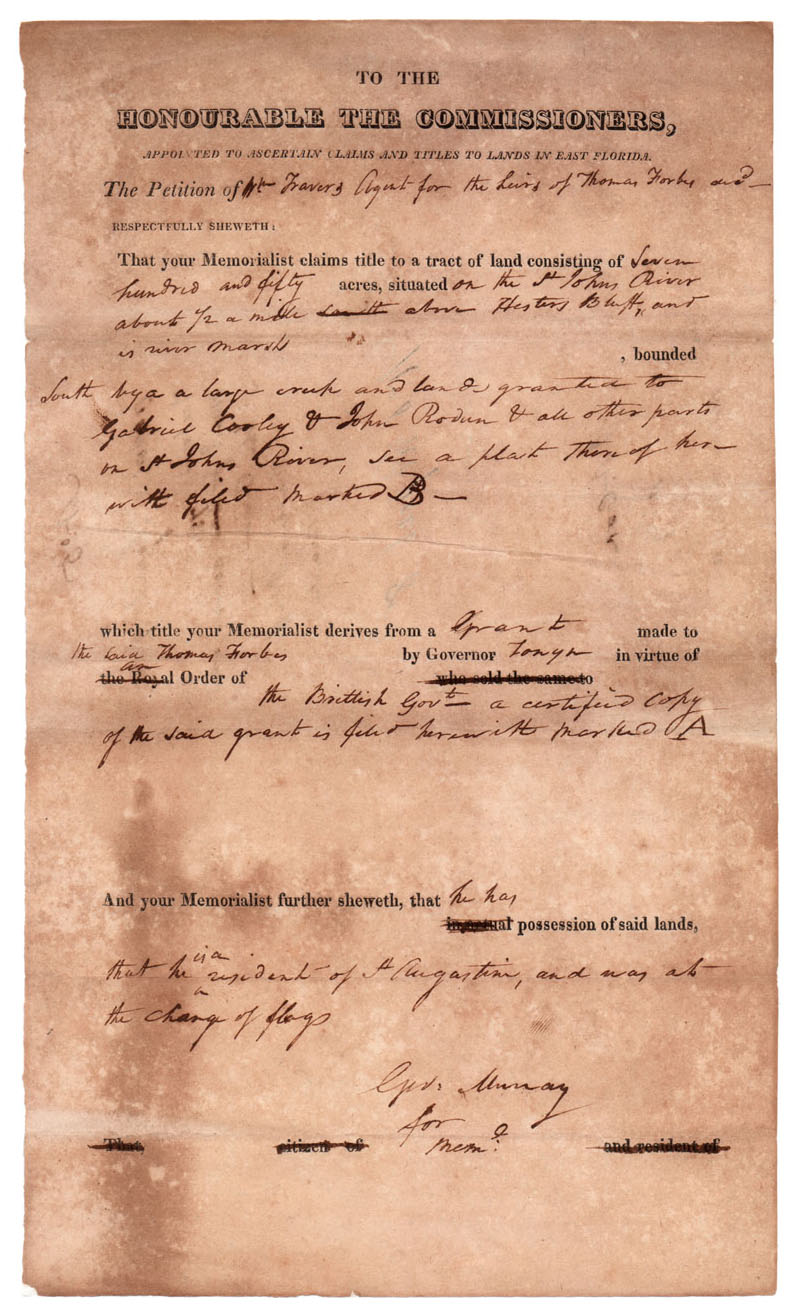 TO THE
HONOURABLE THE COMMISSIONERS,
APPOINTED TO ASCERTAIN CLAIMS AND TITLES TO LANDS IN EAST FLORIDA.
The Petition of Wm Travers Agent for the heirs of Thomas Forbes decd
RESPECTFULLY SHEWETH:
That your Memorialist claims title to a tract of land consisting of Seven
hundred and fifty acres, situated on the St Johns River
about 1/2 a mile south above Hesters Bluff, and
is river marsh , bounded
South by a a large creek and lands granted to
Gabriel Cooley & John Rodun & all other parts
on St Johns River, see a plat thereof here
with filed marked B
which title your Memorialist derives from a Grant made to
the said Thomas Forbes by Governor Tonyn in virtue of
an
the Royal Order of who sold the same to
the Brittish Govt a certified copy
of the said grant is filed herewith marked A
And your Memorialist further sheweth, that he has
in actual possession of said lands,
that he is a resident of St Augustine, and was at
the change of flags
Geo: Murray
for
Meml
That, citizen of and resident of